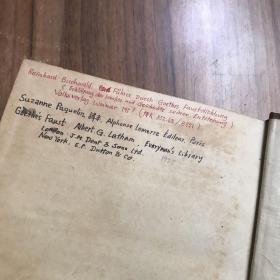 Reinhard Buchwald Führer durch Goethes Faustdichtung
(Erklärung des Werkes und Geschichte seiner Entstehung)
Volksverlag Weimar
Suzanne Paquelin, 訳本, Alphonse Lemerre Éditeur, Paris
Goethe's Faust Albert G. Latham, Everyman's Library
London: J. M. Dent & Sons Ltd.
New York: E. P. Dutton & Co.